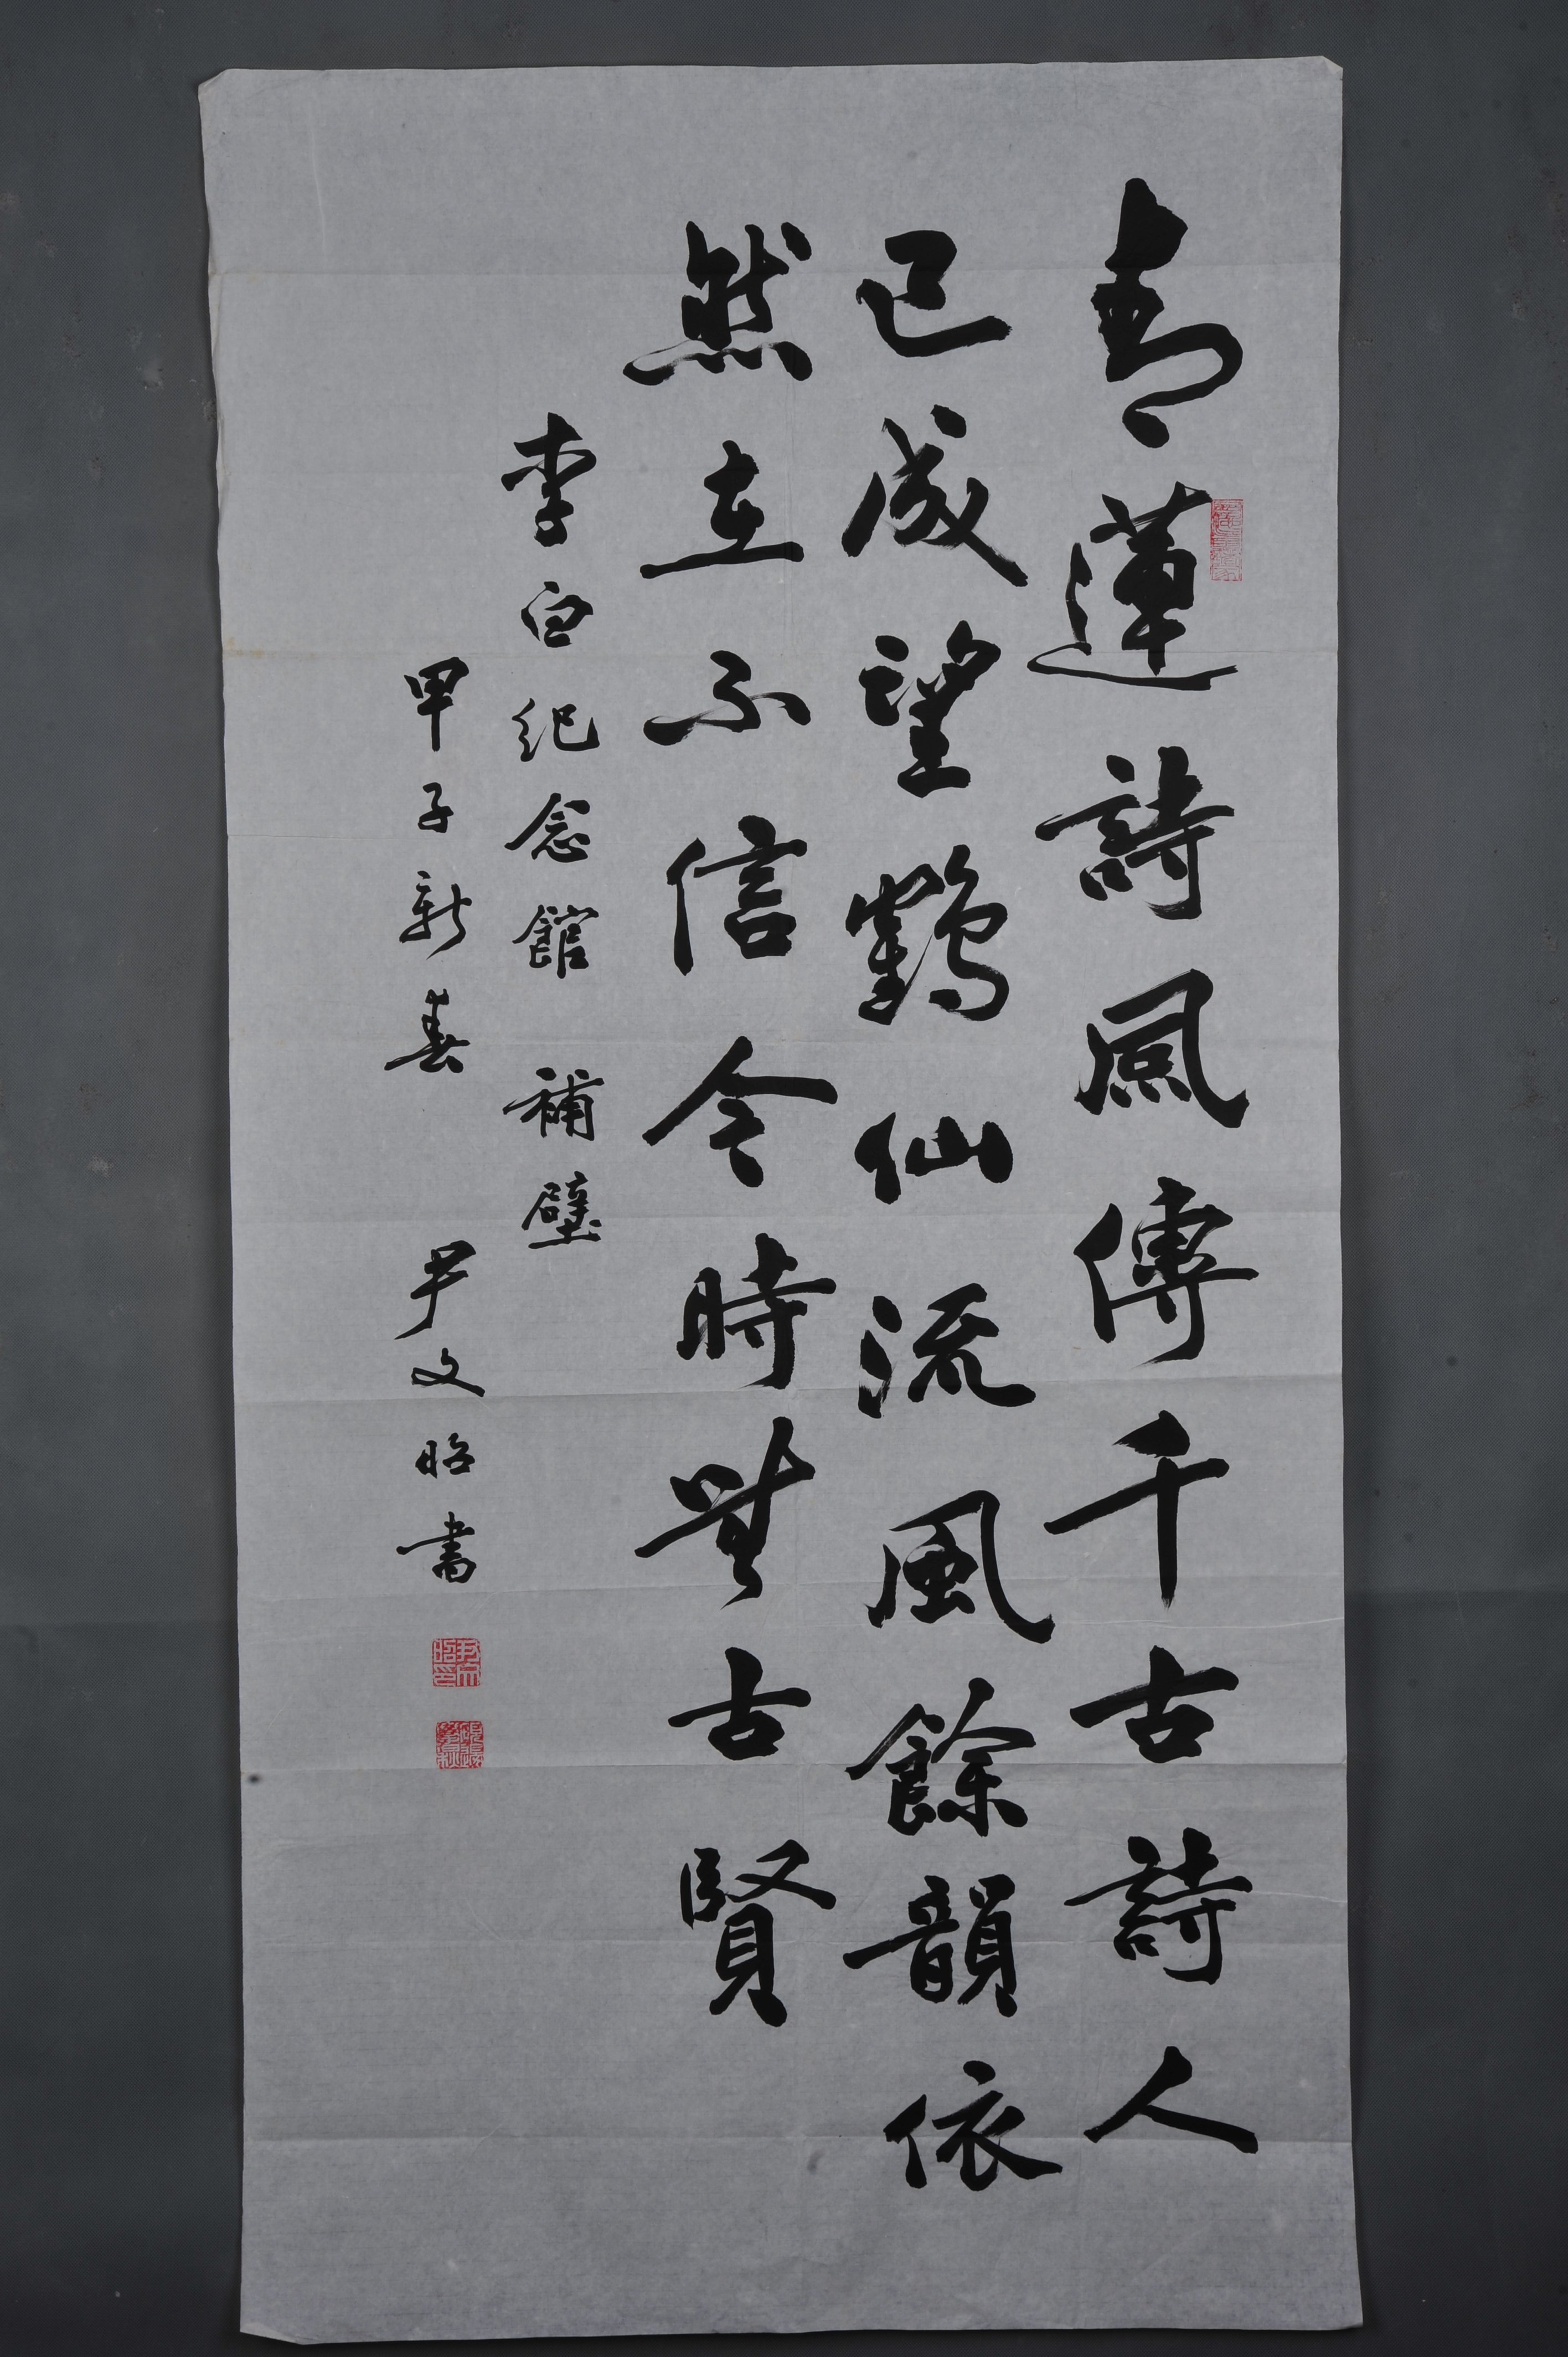 青蓮詩風傳千古詩人
已成望鶴仙流風餘韻依
然在不信今時無古賢
李白纪念館 補壁
甲子新春 尹文昭書